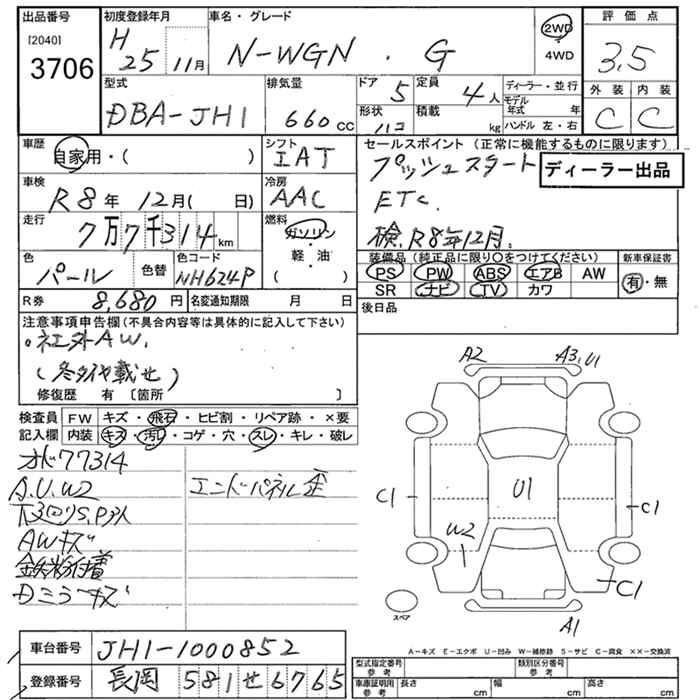 出品番号 [2040] 3706
初度登録年月 H 25 11月
車名・グレード N-WGN . G
2WD ・ 4WD
評価点 3.5
外装 C 内装 C
型式 DBA-JH1
排気量 660 cc
ドア 5 定員 4人
形状 ハコ 積載 kg
ディーラー・並行
モデル年式 年
ハンドル 左・右
車歴 自家用・( )
シフト IAT
車検 R8年 12月( 日)
冷房 AAC
走行 7万7千314km
燃料 ガソリン・軽油・( )
色 パール 色替 色コード NH624P
R券 8,680円 名変通知期限 月 日
セールスポイント (正常に機能するものに限ります)
プッシュスタート
ディーラー出品
ETC.
検.R8年12月.
装備品 (純正品に限り○をつけてください) 新車保証書
PS PW ABS エアB AW 有・無
SR ナビ TV カワ
後日品
注意事項申告欄(不具合内容等は具体的に記入して下さい)
。社外AW.
(冬タイヤ載せ)
修復歴 有 〔箇所 〕
検査員 FW キズ・飛石・ヒビ割・リペア跡・×要
記入欄 内装 キズ・汚レ・コゲ・穴・スレ・キレ・破レ
オド77314
A.U.W2 エンドパネル歪
下回りS,P少入
AWキズ
鉄粉付着
Dミラーキズ
A2 A3,U1
C1 U1 C1
W2
C1
スペア
A1
A-キズ E-エクボ U-凹み W-補修跡 S-サビ C-腐食 ××-交換済
車台番号 JH1-1000852
登録番号 長岡 581 せ 6765
型式指定番号 参考 類別区分番号 参考
車庫証明用 参考 長さ cm 幅 cm 高さ cm